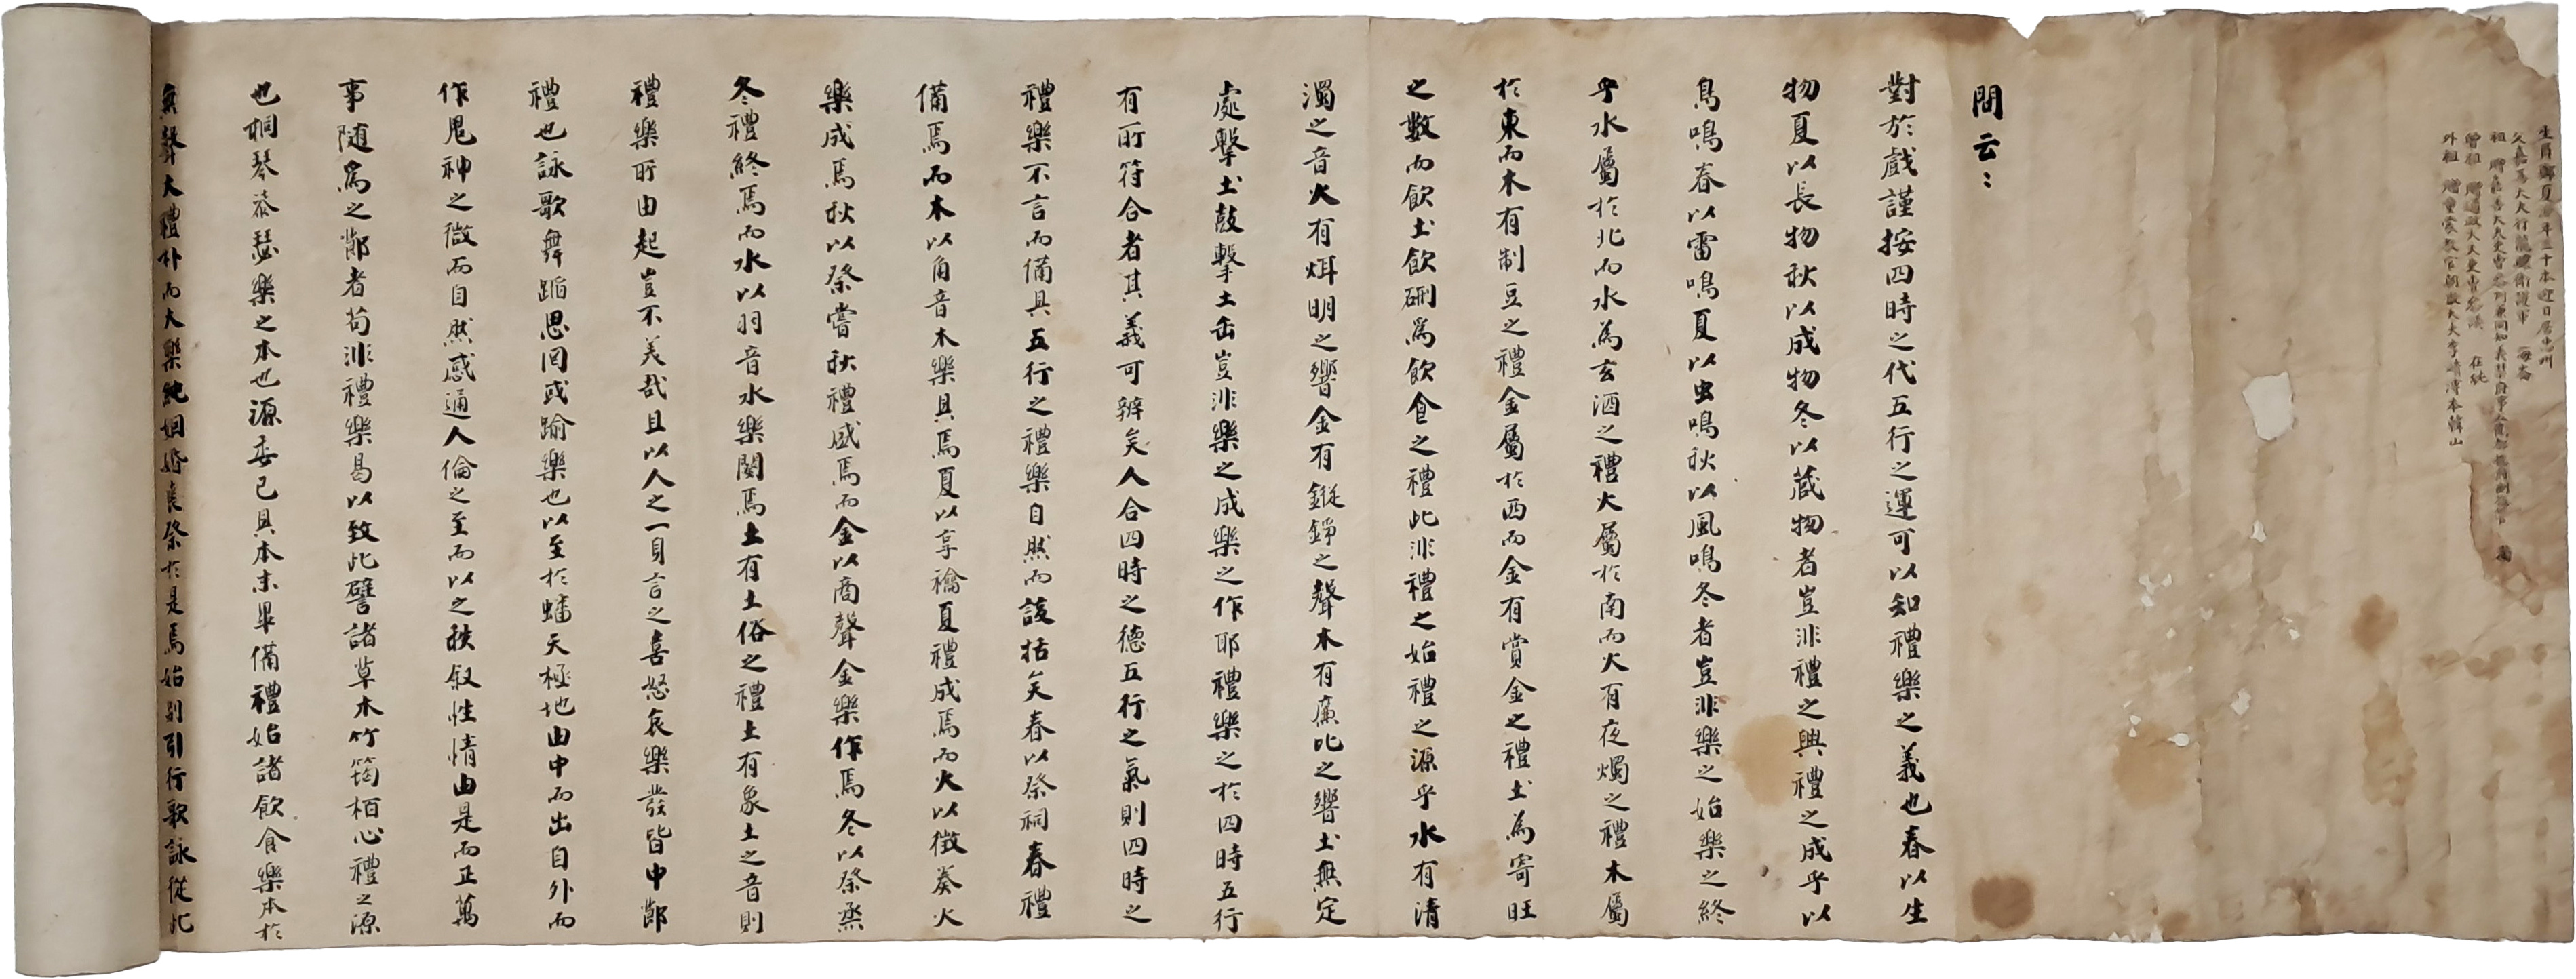 生員鄭夏 年三十本迎日居忠州
父嘉善大夫行龍驤衛護軍 海崙
祖 贈嘉善大夫吏曹參判兼同知義禁府事
曾祖 贈通政大夫吏曹參議 在純
外祖 贈童蒙教官朝散大夫李 溥本韓山
問云：
對於戲謹按四時之代五行之運可以知禮樂之義也春以生
物夏以長物秋以成物冬以藏物者豈非禮之興禮之成乎以
鳥鳴春以雷鳴夏以虫鳴秋以風鳴冬者豈非樂之始樂之終
乎水屬於北而水為玄酒之禮火屬於南而火有夜燭之禮木屬
於東而木有制豆之禮金屬於西而金有賞金之禮土為寄旺
之數而飲土飲硎為飲食之禮此非禮之始禮之源乎水有清
濁之音火有炳明之響金有鏦錚之聲木有廉比之響土無定
處擊土鼓擊土缶豈非樂之成樂之作耶禮樂之於四時五行
有所符合者其義可辨矣人合四時之德五行之氣則四時之
禮樂不言而備具五行之禮樂自然而該括矣春以祭祠春禮
備焉而木以角音木樂具焉夏以享禴夏禮成焉而火以徵奏火
樂成焉秋以祭嘗秋禮盛焉而金以商聲金樂作焉冬以祭烝
冬禮終焉而水以羽音水樂闋焉土有土俗之禮土有象土之音則
禮樂所由起豈不美哉且以人之一身言之喜怒哀樂發皆中節
禮也詠歌舞蹈思罔或踰樂也以至於蟠天極地由中而出自外而
作鬼神之微而自然感通人倫之至而以之秩敍性情由是而正萬
事隨為之節者苟非禮樂曷以致此譬諸草木竹筠栢心禮之源
也桐琴 瑟樂之本也源委已具本末畢備禮始諸飲食樂本於
無聲大禮朴而大樂純 婚喪祭於是焉始別引行歌詠從此